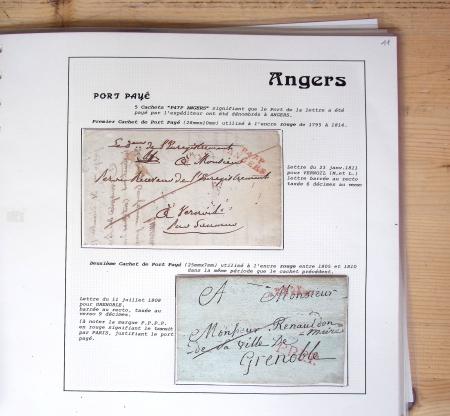 11
Angers
PORT PAYÉ
5 Cachets "P47P ANGERS" signifiant que le Port de la lettre a été
payé par l'expéditeur ont été dénombrés à ANGERS.
Premier Cachet de Port Payé (28mmx10mm) utilisé à l'encre rouge de 1795 à 1814.
à Monsieur
Receveur de l'Enregistrement
à Vernoil
par Saumur
P47P
ANGERS
Lettre du 23 janv.1811
pour VERNOIL (M.et L.)
lettre barrée au recto
taxée 6 décimes au verso
Deuxième Cachet de Port Payé (25mmx7mm) utilisé à l'encre rouge entre 1805 et 1810
dans la même période que le cachet précédent.
Lettre du 11 juillet 1808
pour GRENOBLE,
barrée au recto, taxée au
verso 9 décimes.
(à noter la marque P.P.P.P.
en rouge signifiant le transit
par PARIS, justifiant le port
payé.
A Monsieur
Monsieur Renauldon
maire
de la ville de
Grenoble